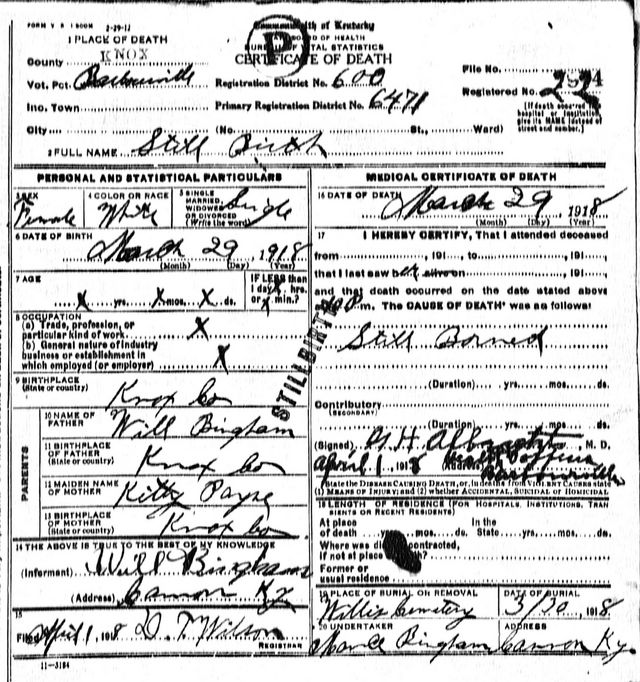 FORM V. S. 1 500M 2-29-12
Commonwealth of Kentucky
BOARD OF HEALTH
BUREAU OF VITAL STATISTICS
CERTIFICATE OF DEATH
P
1 PLACE OF DEATH
County KNOX
Vot. Pct. Barbourville
Registration District No. 600
File No.
Ino. Town
Primary Registration District No. 6471
Registered No. 22
(If death occurred in hospital or institution, give its NAME instead of street and number.)
City (No. St., Ward)
2 FULL NAME Still Birth
PERSONAL AND STATISTICAL PARTICULARS
3 SEX Female
4 COLOR OR RACE White
5 SINGLE, MARRIED, WIDOWED OR DIVORCED (Write the word) Single
6 DATE OF BIRTH March 29, 1918
(Month) (Day) (Year)
7 AGE
X yrs. X mos. X ds.
IF LESS than 1 day X hrs. or X min.?
8 OCCUPATION
(a) Trade, profession, or particular kind of work X
(b) General nature of industry business or establishment in which employed (or employer) X
9 BIRTHPLACE (State or country) Knox Co
PARENTS
10 NAME OF FATHER Will Bingham
11 BIRTHPLACE OF FATHER (State or country) Knox Co
12 MAIDEN NAME OF MOTHER Kitty Payne
13 BIRTHPLACE OF MOTHER (State or country) Knox Co
14 THE ABOVE IS TRUE TO THE BEST OF MY KNOWLEDGE
(Informant) Will Bingham
(Address) Cannon Ky
15
Filed April 1, 1918 D. T. Wilson
REGISTRAR
11-3184
STILLBIRTH
MEDICAL CERTIFICATE OF DEATH
16 DATE OF DEATH March 29 1918
(Month) (Day) (Year)
17 I HEREBY CERTIFY, That I attended deceased
from 191 , to 191 ,
that I last saw h alive on 191 ,
and that death occurred on the date stated above
at m. The CAUSE OF DEATH* was as follows:
Still Borned
(Duration) yrs. mos. ds.
Contributory (SECONDARY)
(Duration) yrs. mos. ds.
(Signed) G. H. Albright M. D.
April 1, 1918 (Address) Barbourville
*State the DISEASE CAUSING DEATH, or, in deaths from VIOLENT CAUSES state (1) MEANS OF INJURY; and (2) whether ACCIDENTAL, SUICIDAL or HOMICIDAL.
18 LENGTH OF RESIDENCE (FOR HOSPITALS, INSTITUTIONS, TRANSIENTS OR RECENT RESIDENTS)
At place of death yrs. mos. ds. In the State yrs. mos. ds.
Where was contracted,
if not at place
Former or usual residence
19 PLACE OF BURIAL OR REMOVAL Willis Cemetery
DATE OF BURIAL 3/30, 1918
20 UNDERTAKER Bingham
ADDRESS Cannon Ky.